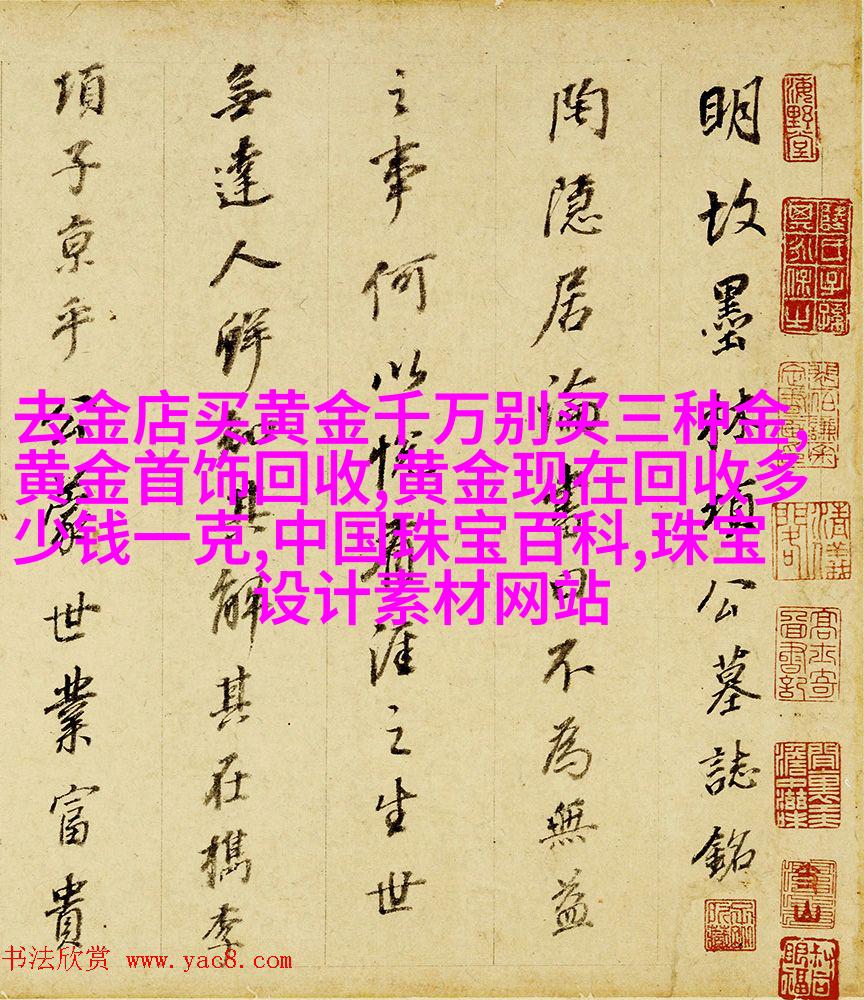 去金店买黄金千万别买三种金,
黄金首饰回收,黄金现在回收多
少钱一克,中国珠宝百科,珠宝
设计素材网站
明故墨林項公墓誌銘
陶隱居論書曰不為無益
之事何以悅有涯之生世
無達人鮮知其解其在檇李
項子京乎公蒙世業富貴
海野堂
书法欣赏 www.yac8.com